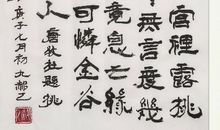 宮裡露桃
無言度幾
竟息亡緣
可憐金谷
人 唐杜牧題桃
庚子七月初九